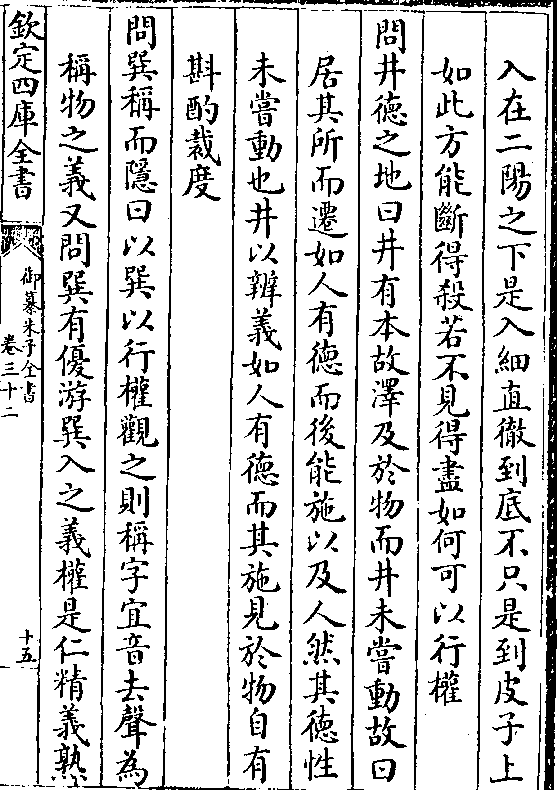 入在二陽之下是入細直徹到底不只是到皮子上
如此方能斷得殺若不見得盡如何可以行權
問井徳之地曰井有本故澤及於物而井未嘗動故曰
居其所而遷如人有徳而後能施以及人然其徳性
未嘗動也井以辨義如人有徳而其施見於物自有
斟酌裁度
問巽稱而隱曰以巽以行權觀之則稱字宜音去聲為
稱物之義又問巽有優游巽入之義權是仁精義熟
欽定四庫全書
御纂朱子全書
卷三十二
十五